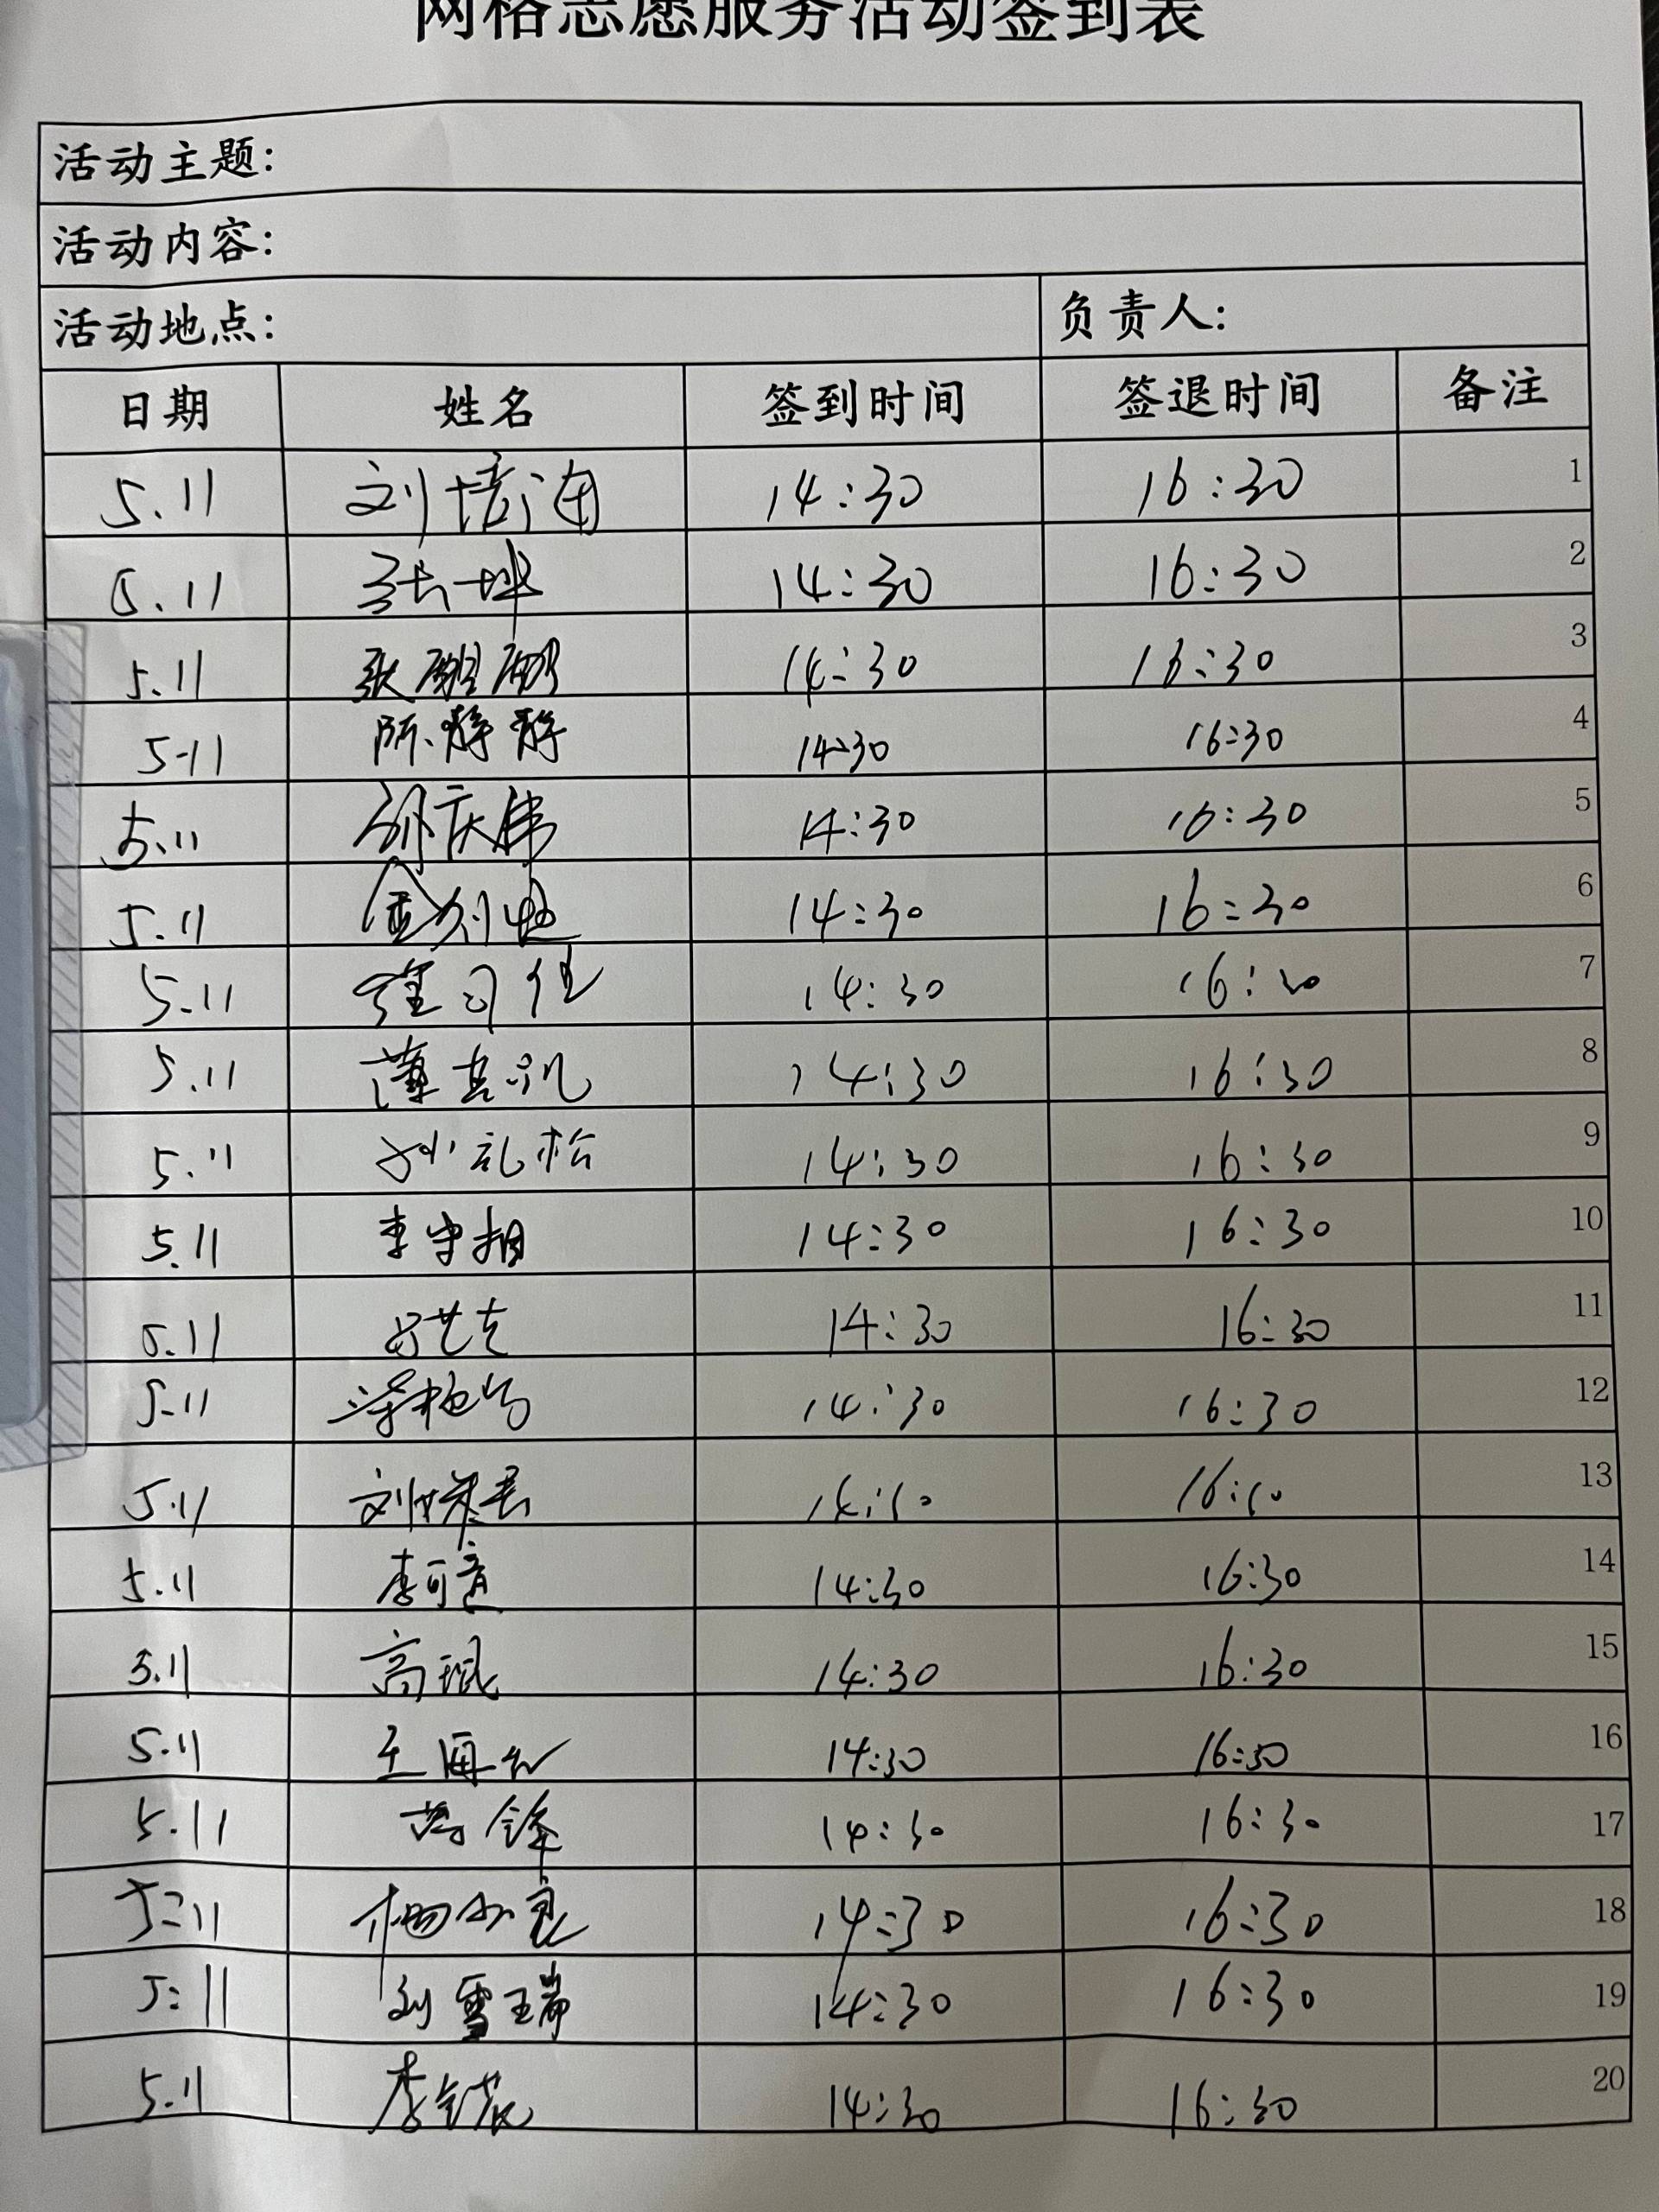 网格志愿服务活动签到表
活动主题：
活动内容：
活动地点： 负责人：
日期 姓名 签到时间 签退时间 备注
5.11 刘培 14:30 16:30 1
5.11 张坤 14:30 16:30 2
5.11 张 14:30 16:30 3
5-11 陈静静 14:30 16:30 4
5.11 孙庆伟 14:30 16:30 5
5.11 14:30 16:30 6
5.11 14:30 16:30 7
5.11 14:30 16:30 8
5.11 孙礼松 14:30 16:30 9
5.11 李守相 14:30 16:30 10
5.11 14:30 16:30 11
5-11 14:30 16:30 12
5.11 刘 13
5.11 李可意 14:30 16:30 14
5.11 高琨 14:30 16:30 15
5.11 王海 14:30 16:30 16
5.11 锋 14:30 16:30 17
5:11 杨 14:30 16:30 18
5:11 刘雪瑞 14:30 16:30 19
5.11 李 14:30 16:30 20